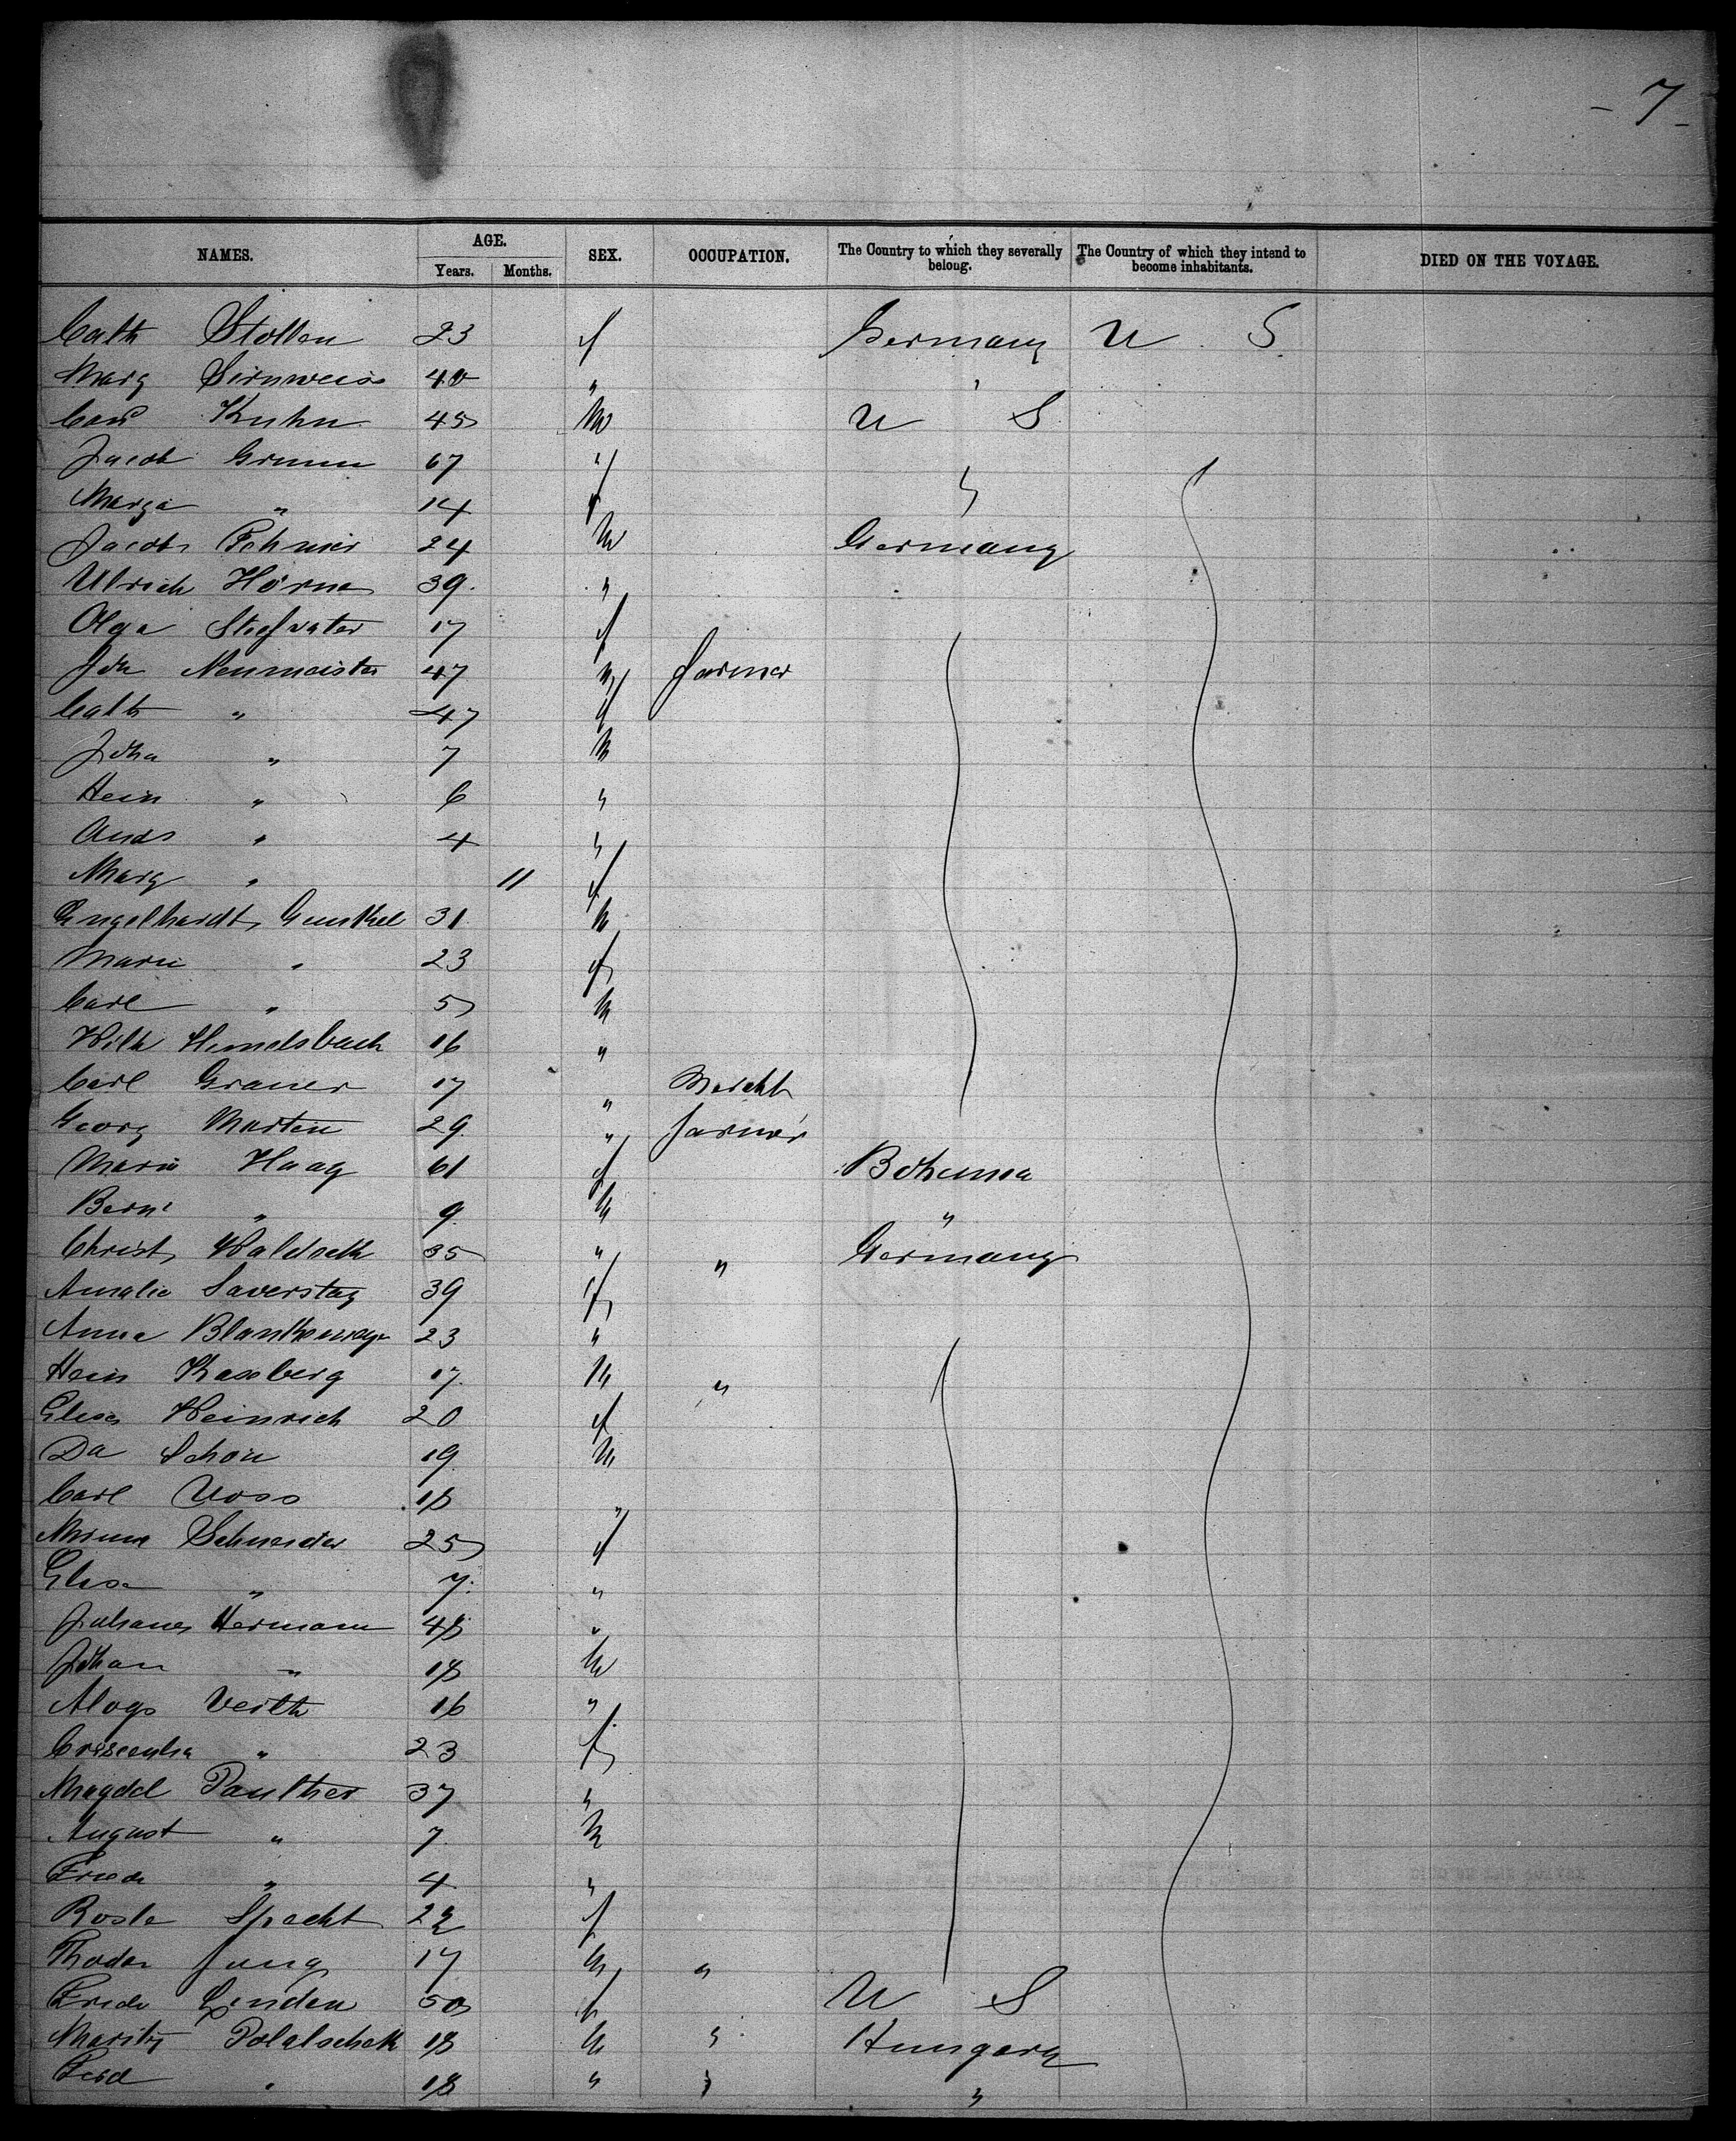 - 7 -
NAMES. AGE. Years. Months. SEX. OCCUPATION. The Country to which they severally belong. The Country of which they intend to become inhabitants. DIED ON THE VOYAGE.
Cath Stolben 23 f Germany U S
Marg Sirnweiss 40 " "
Carl Kuhn 45 M U S
Jacob Grumm 67 "
Marga " 14 f "
Jacob 24 M Germany
Ulrich Horne 39 "
Olga Stiefvater 17 f
Joh Neumeister 47 M farmer
Cath " 47 f
Joha " 7 M
Hein " 6 "
Ands " 4 "
Marg " 11 f
Engelhardt Gunkel 31 M
Marie " 23 f
Carl " 5 M
Wilh Himelsbach 16 "
Carl Graner 17 " Mercht
Georg Marten 29 " farmer
Marie Haag 61 f Bohemia
Bern " 9 M "
Christ 35 " " Germany
Amalie Saverstag 39 f
Anna 23 "
Hein Kassberg 17 M "
Elisa Heinrich 20 f
Da Schön 19 M
Carl Voss 18 "
Minna Schneider 25 f
Elisa " 7 "
Juliane Hermann 48 "
Johan " 18 M
Aloys Veith 16 "
Crescentia " 23 f
Magdel Paulther 37 "
August " 7 M
Fried " 4 "
Rosle Specht 22 f
Thoder Jung 17 M "
Friede Linden 50 f U S
Moritz Polatschek 18 M " Hungary
Ferd " 18 " " "